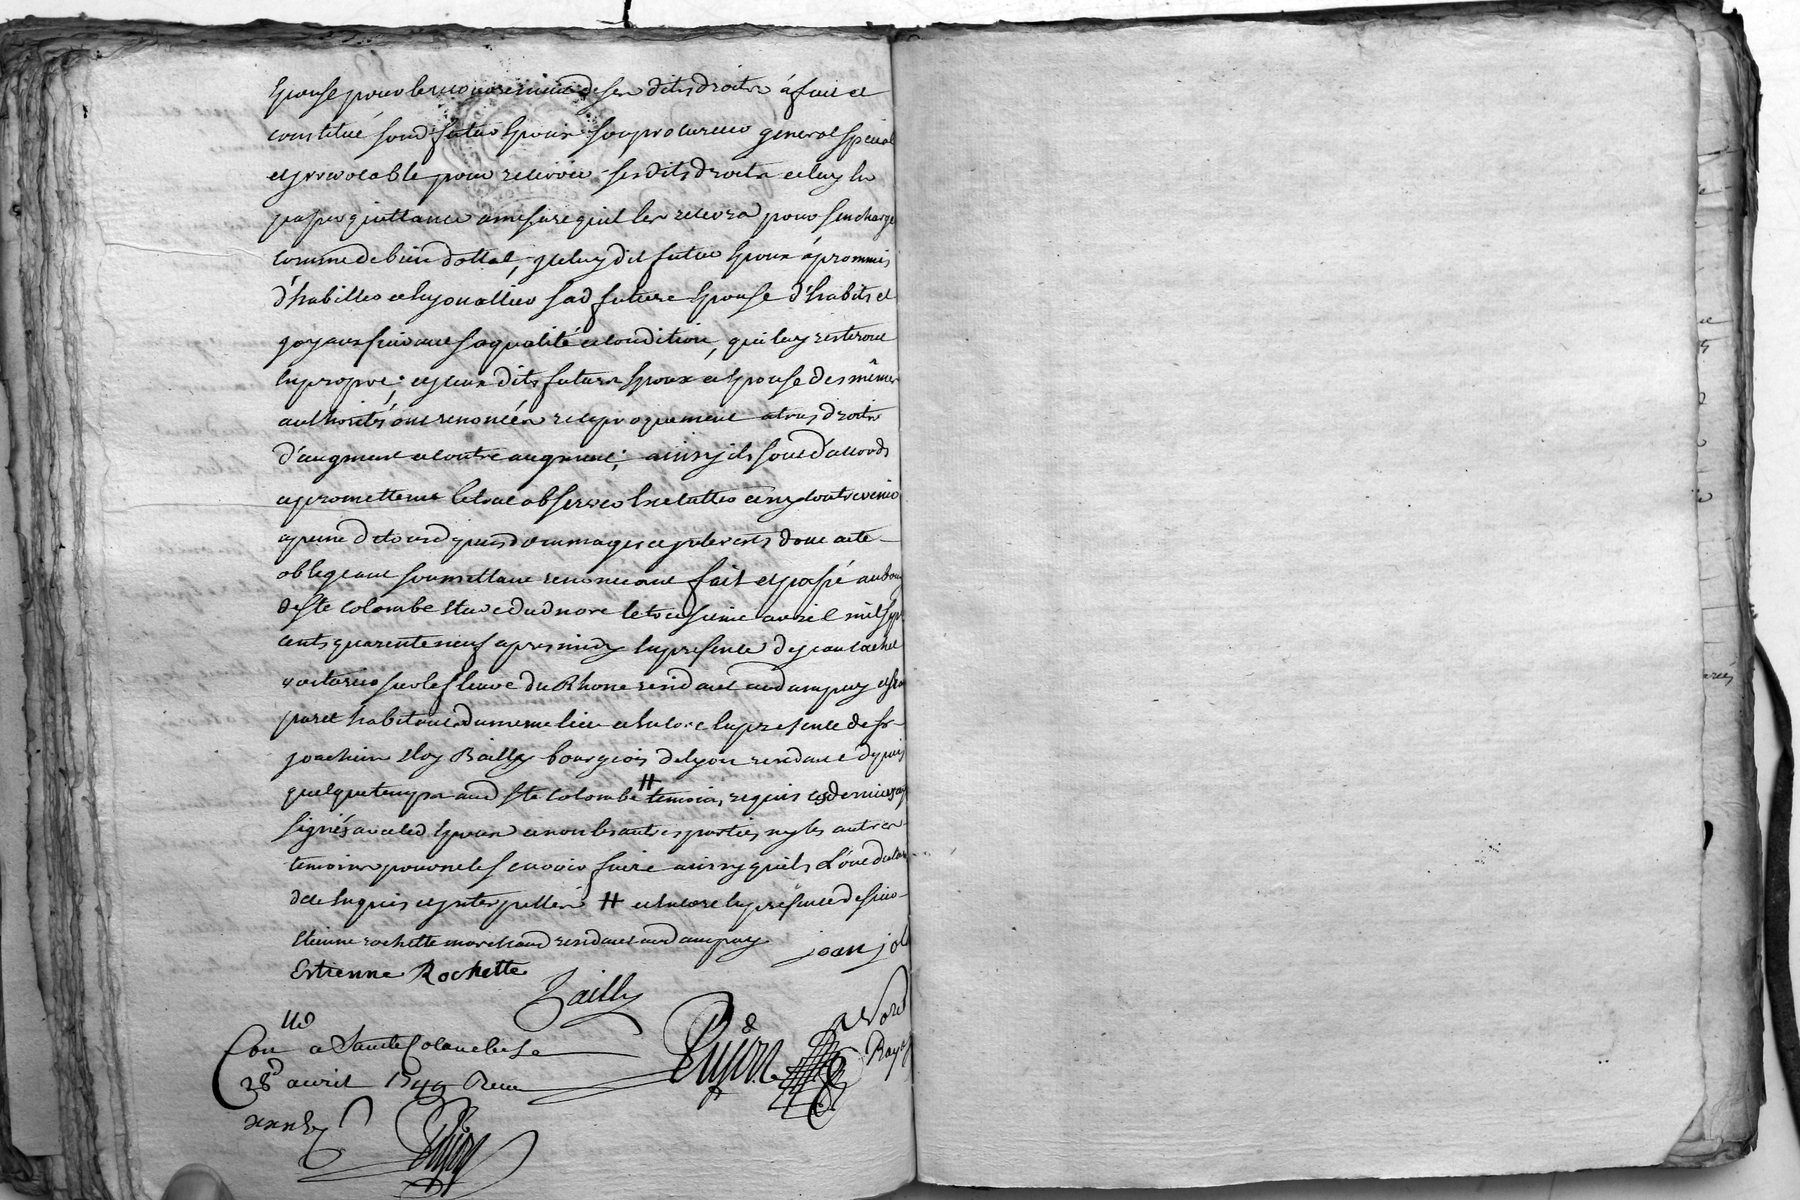 Epouse pour le recouvrement de ses dits droits á fait et
constitué sond futur Epoux son procureur general special
et jrrevocable pour recevoir ses dits droits et luy En
passer quittance amesure quil les recevra pour sen charger
comme de bien dottal, jceluy dit futur Epoux á prommis
d'habiller et Enjoualler sad future Epouse d'habits et
joyaux suivant sa qualité et condition, qui luy resteront
En propre; et jceux dits futurs Epoux et Epouse des mêmes
authorités ont renoncés reciproquement a tous droits
d'augment et contre augment; ainsy ils sont d'accords
et promettent le tout observer Exécutter et ny contrevenir
a peine de tous depens dommages et jnterests dont acte
obligeant soumettant renonceant fait et passé au bourg
de Ste Colombe Etude dud nore le treisieme avril mil sept
cents quarente neuf apres midy En presence de jean
voiturier sur le fleuve du Rhone residant aud ampuy et
habitant du meme lieu et Encore En presence de sr
joachim Eloy Bailly bourgeois de Lyon residant depuis
quelque temps aud Ste Colombe # temoins requis ces derniers
signés avec led Epoux et non les autres parties ny les autres
temoins pour ne le scavoir faire ainsy quils L'ont declaré
de ce Enquis et jnterpellés # et Encore En presence de sieur
Etienne rochette marchand residant aud ampuy
joan
Estienne Rochette
Bailly
Con a Sainte Colombe le
28e avril 1749 Recu